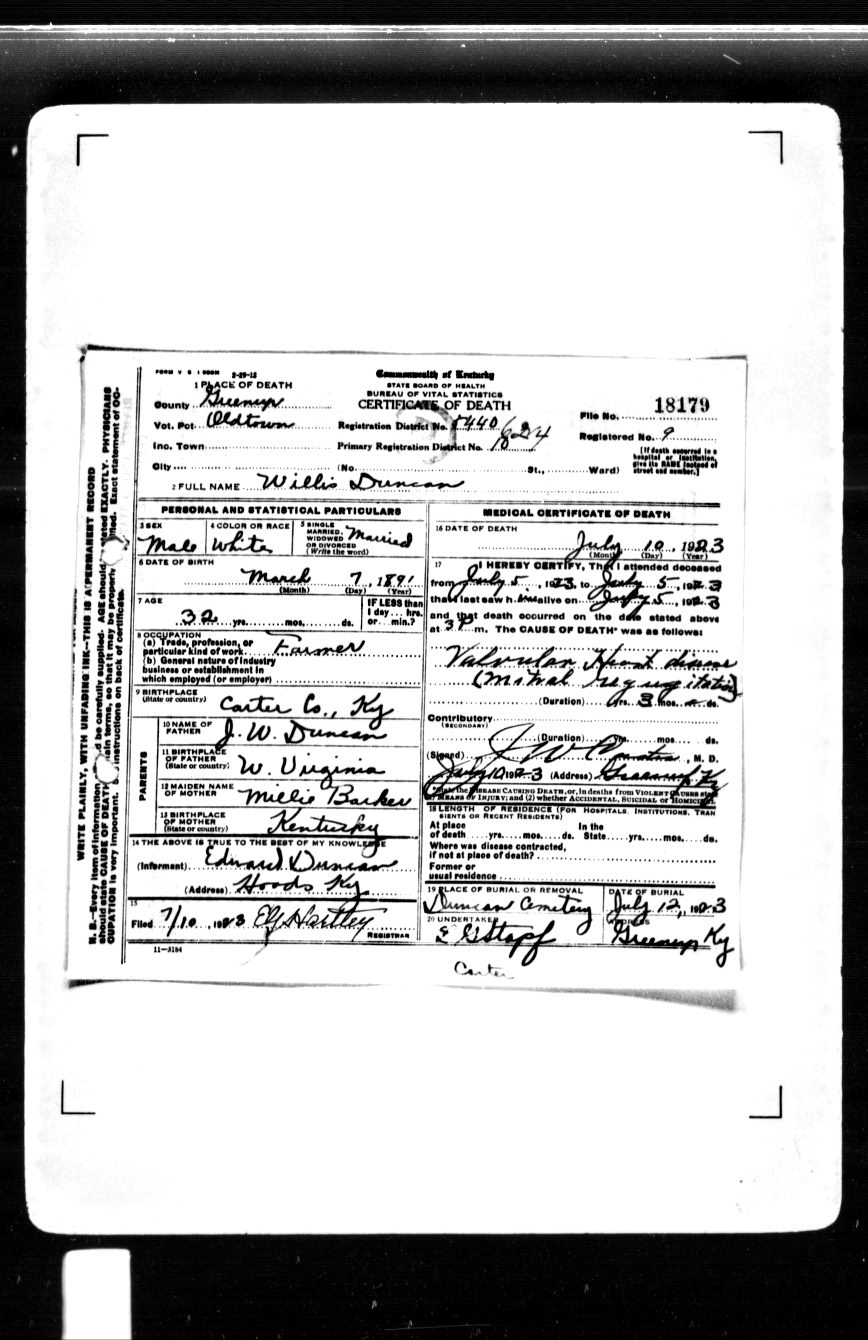 WRITE PLAINLY, WITH UNFADING INK—THIS IS A PERMANENT RECORD
N. B.—Every item of information be carefully supplied. AGE should stated EXACTLY. PHYSICIANS
should state CAUSE OF DEATH in terms, so that it may be properly Exact statement of OC-
CUPATION is very important. instructions on back of certificate.
2-29-12
Commonwealth of Kentucky
STATE BOARD OF HEALTH
BUREAU OF VITAL STATISTICS
CERTIFICATE OF DEATH
1 PLACE OF DEATH
County Greenup
Vot. Pct. Oldtown
Registration District No. 5440
File No. 18179
Inc. Town
Primary Registration District No.
Registered No. 9
City (No. St., Ward)
[If death occurred in a
hospital or institution,
give its NAME instead of
street and number.]
2 FULL NAME Willis Duncan
PERSONAL AND STATISTICAL PARTICULARS
3 SEX Male
4 COLOR OR RACE White
5 SINGLE
MARRIED,
WIDOWED
OR DIVORCED
(Write the word) Married
6 DATE OF BIRTH
March 7, 1891
(Month) (Day) (Year)
7 AGE
32 yrs. mos. ds.
IF LESS than
1 day... hrs.
or... min.?
8 OCCUPATION
(a) Trade, profession, or
particular kind of work Farmer
(b) General nature of industry
business or establishment in
which employed (or employer)
9 BIRTHPLACE
(State or country) Carter Co., Ky
PARENTS
10 NAME OF
FATHER J. W. Duncan
11 BIRTHPLACE
OF FATHER
(State or country) W. Virginia
12 MAIDEN NAME
OF MOTHER Millie Barker
13 BIRTHPLACE
OF MOTHER
(State or country) Kentucky
14 THE ABOVE IS TRUE TO THE BEST OF MY KNOWLEDGE
(Informant) Edward Duncan
(Address) Hoods Ky
15
Filed 7/10, 1923 E G Hartley
REGISTRAR
11—3184
MEDICAL CERTIFICATE OF DEATH
16 DATE OF DEATH
July 10, 1923
(Month) (Day) (Year)
17 I HEREBY CERTIFY, That I attended deceased
from July 5, 1923, to July 5, 1923
that I last saw him alive on July 5, 1923
and that death occurred on the date stated above
at 3 P m. The CAUSE OF DEATH* was as follows:
Valvular Heart disease
(Mitral regurgitation)
(Duration) yrs. 3 mos. ds.
Contributory
(SECONDARY)
(Duration) yrs. mos. ds.
(Signed) J W , M. D.
July 10 1923 (Address) Greenup Ky
DISEASE CAUSING DEATH, or, in deaths from VIOLENT CAUSES state
MEANS OF INJURY; and (2) whether ACCIDENTAL, SUICIDAL or HOMICIDAL
18 LENGTH OF RESIDENCE (FOR HOSPITALS, INSTITUTIONS, TRAN
SIENTS OR RECENT RESIDENTS)
At place In the
of death yrs. mos. ds. State yrs. mos. ds.
Where was disease contracted,
if not at place of death?
Former or
usual residence
19 PLACE OF BURIAL OR REMOVAL
Duncan Cemetery
DATE OF BURIAL
July 12, 1923
20 UNDERTAKER
E G Stapf
ADDRESS
Greenup Ky
Carter